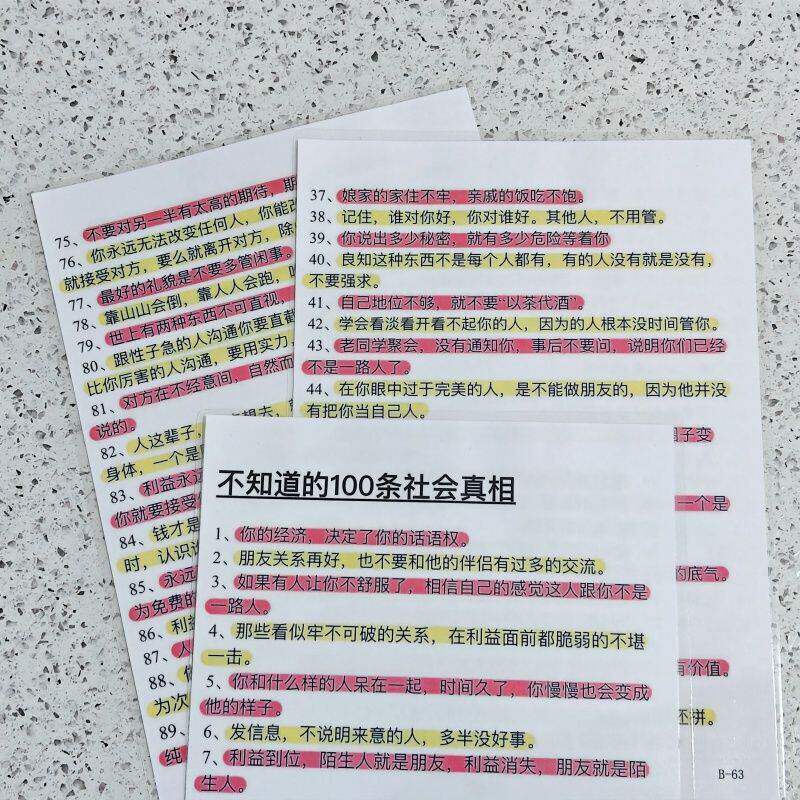 不知道的100条社会真相
1、你的经济，决定了你的话语权。
2、朋友关系再好，也不要和他的伴侣有过多的交流。
3、如果有人让你不舒服了，相信自己的感觉这人跟你不是
一路人。
4、那些看似牢不可破的关系，在利益面前都脆弱的不堪
一击。
5、你和什么样的人呆在一起，时间久了，你慢慢也会变成
他的样子。
6、发信息，不说明来意的人，多半没好事。
7、利益到位，陌生人就是朋友，利益消失，朋友就是陌
生人。
37、娘家的家住不牢，亲戚的饭吃不饱。
38、记住，谁对你好，你对谁好。其他人，不用管。
39、你说出多少秘密，就有多少危险等着你
40、良知这种东西不是每个人都有，有的人没有就是没有，
不要强求。
41、自己地位不够，就不要“以茶代酒”。
42、学会看淡看开看不起你的人，因为的人根本没时间管你。
43、老同学聚会，没有通知你，事后不要问，说明你们已经
不是一路人了。
44、在你眼中过于完美的人，是不能做朋友的，因为他并没
有把你当自己人。
子变
一个是
的底气。
有价值。
B-63
75、不要对另一半有太高的期待，期
76、你永远无法改变任何人，你能改
就接受对方，要么就离开对方，除
77、最好的礼貌是不要多管闲事。
78、靠山山会倒，靠人人会跑，
79、世上有两种东西不可直视，
80、跟性子急的人沟通你要直截
比你厉害的人沟通，要用实力，
81、对方在不经意间，自然而
说的。
82、人这辈子，
身体，一个是
83、利益永远
你就要接受
84、钱才是
时，认识
85、永远
为免费的
86、利
87、人
88、
为次
89、
纯